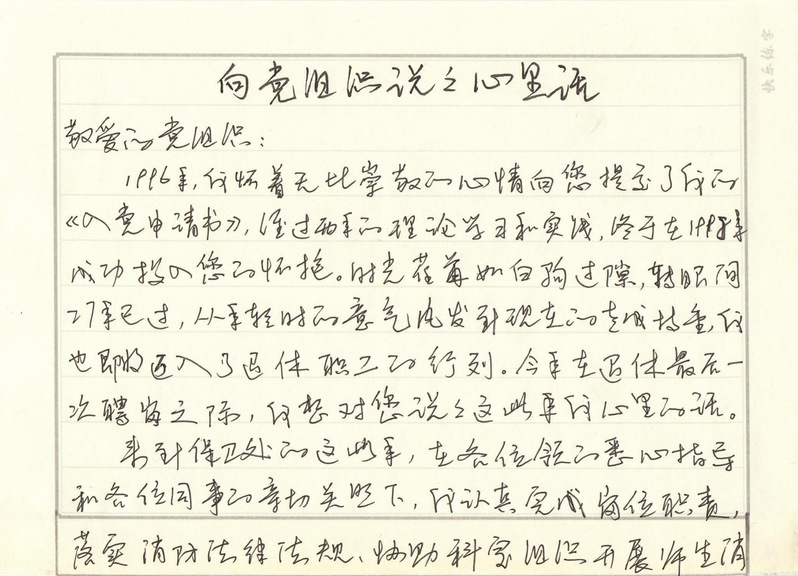 向党组织说说心里话
敬爱的党组织：
1996年，我怀着无比崇敬的心情向您提交了我的
《入党申请书》，经过两年的理论学习和实践，终于在1998年
成功投入您的怀抱。时光荏苒如白驹过隙，转眼间
27年已过，从年轻时的意气风发到现在的老成持重，我
也即将迈入了退休职工的行列。今年在退休最后一
次聘岗之际，我想对您说说这些年我心里的话。
来到保卫处的这些年，在各位领的悉心指导
和各位同事的亲切关照下，我认真完成岗位职责，
落实消防法律法规、协助科室组织开展师生消
快乐练字